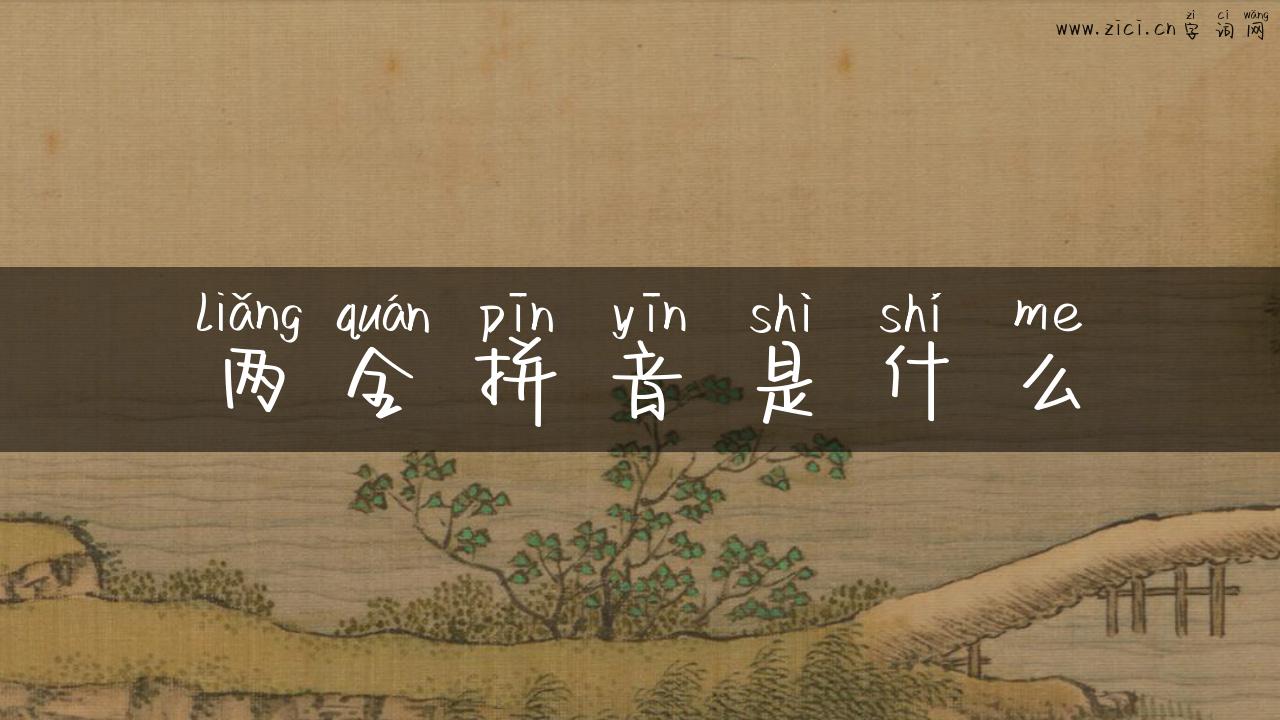 zì cí wǎng
www.zici.cn 字 词 网
liǎng quán pīn yīn shì shí me
两 全 拼 音 是 什 么